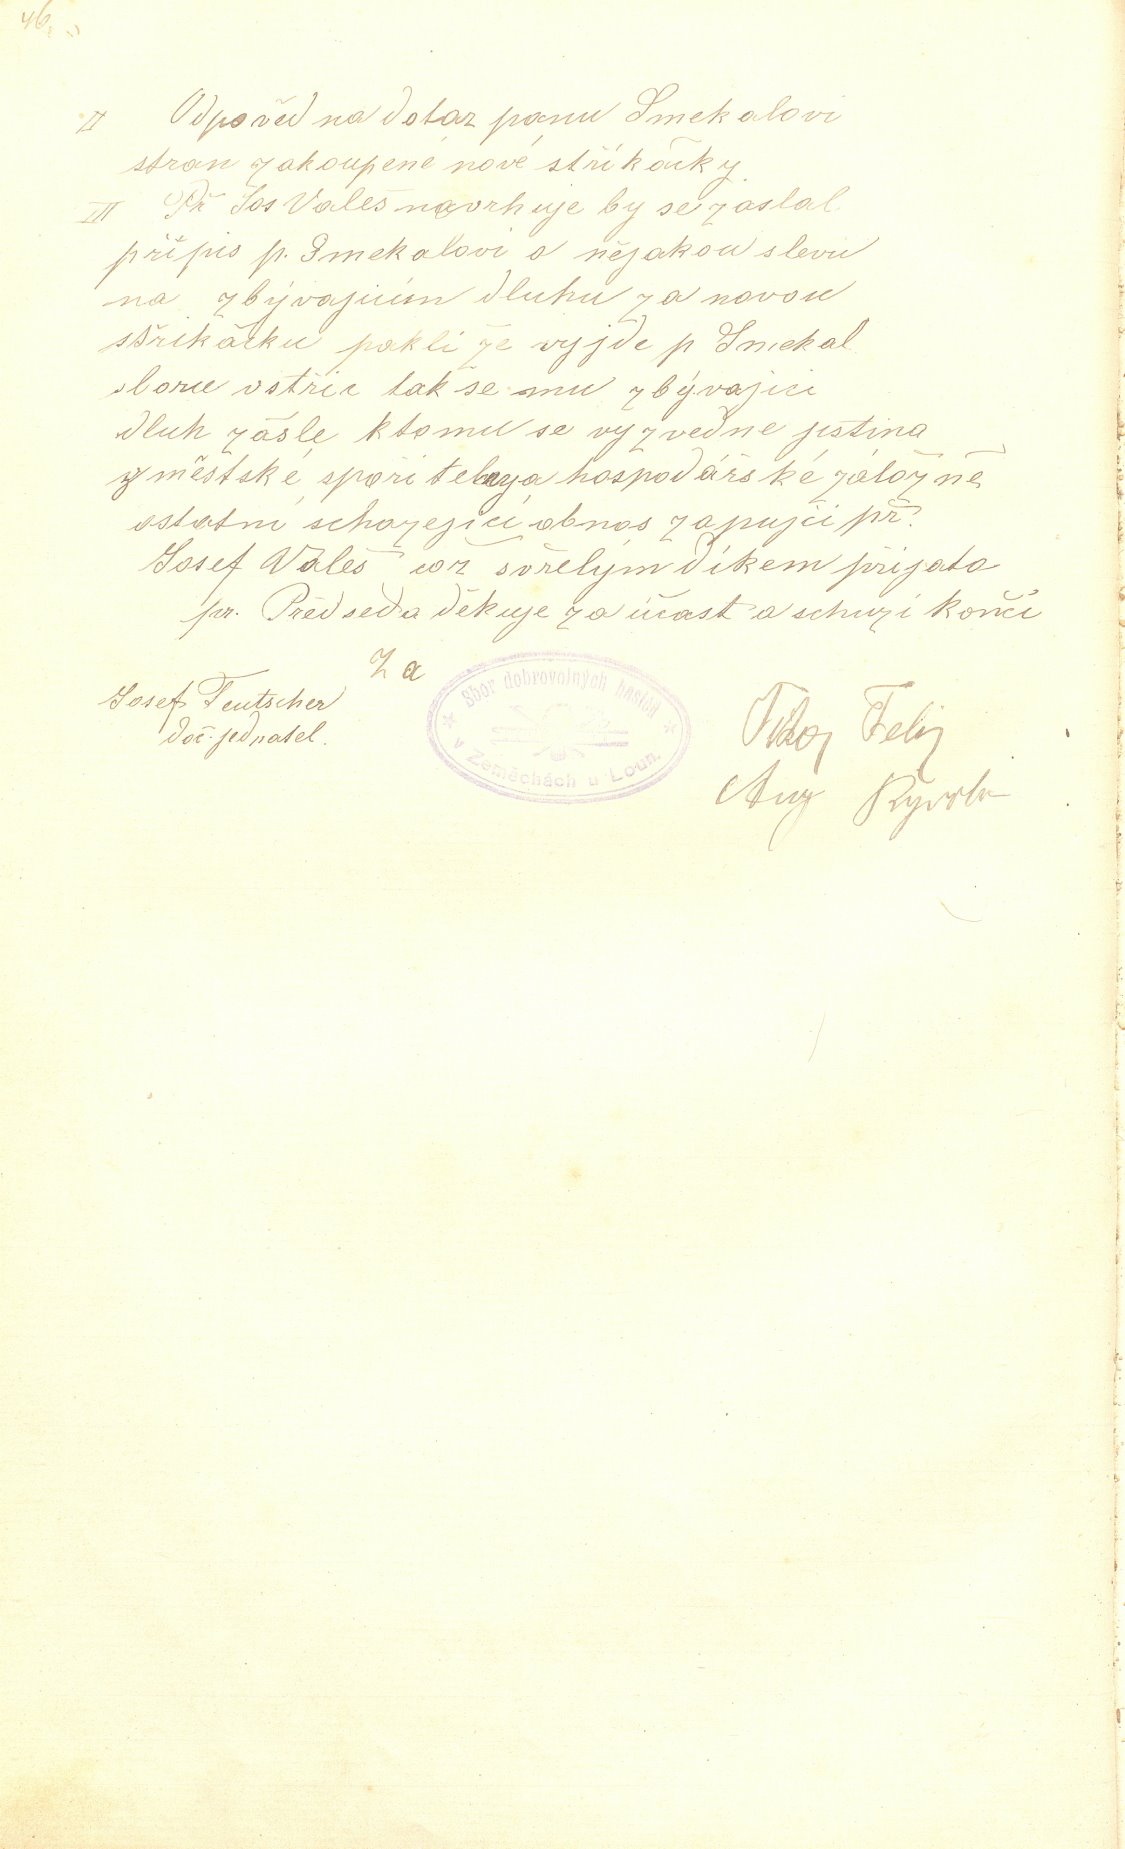 46.
II Odpověd na dotaz panu Smekalovi
stran zakoupené nové stříkačky.
III Př Jos Valeš navrhuje by se zaslal
přípis p. Smekalovi o nějakou slevu
na zbývajícím dluhu za novou
stříkačku pakli že vyjde p Smekal
sboru vstříc tak se mu zbývajici
dluh zašle k tomu se vyzvedne jistina
z městské spořitelny a hospodářské záložně
ostatní scházející obnos zapujčí př.
Josef Valeš což svřelým díkem přijato
pr. Předseda děkuje za účast a schuzi končí
Za
Josef Teutscher
doč. jednatel.
Sbor dobrovolných hasičů
v Zeměchách u Loun.
Felix
Aug